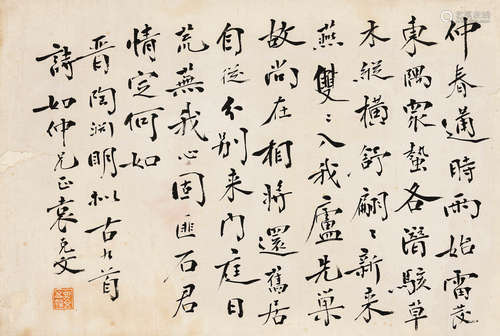 仲春遘時雨始雷發
東隅眾蟄各潛駭草
木縱橫舒翩〻新來
燕雙〻入我廬先巢
故尚在相將還舊居
自從分別來門庭日
荒蕪我心固匪石君
情定何如
晉陶淵明擬古九首
詩如仲兄正袁克文